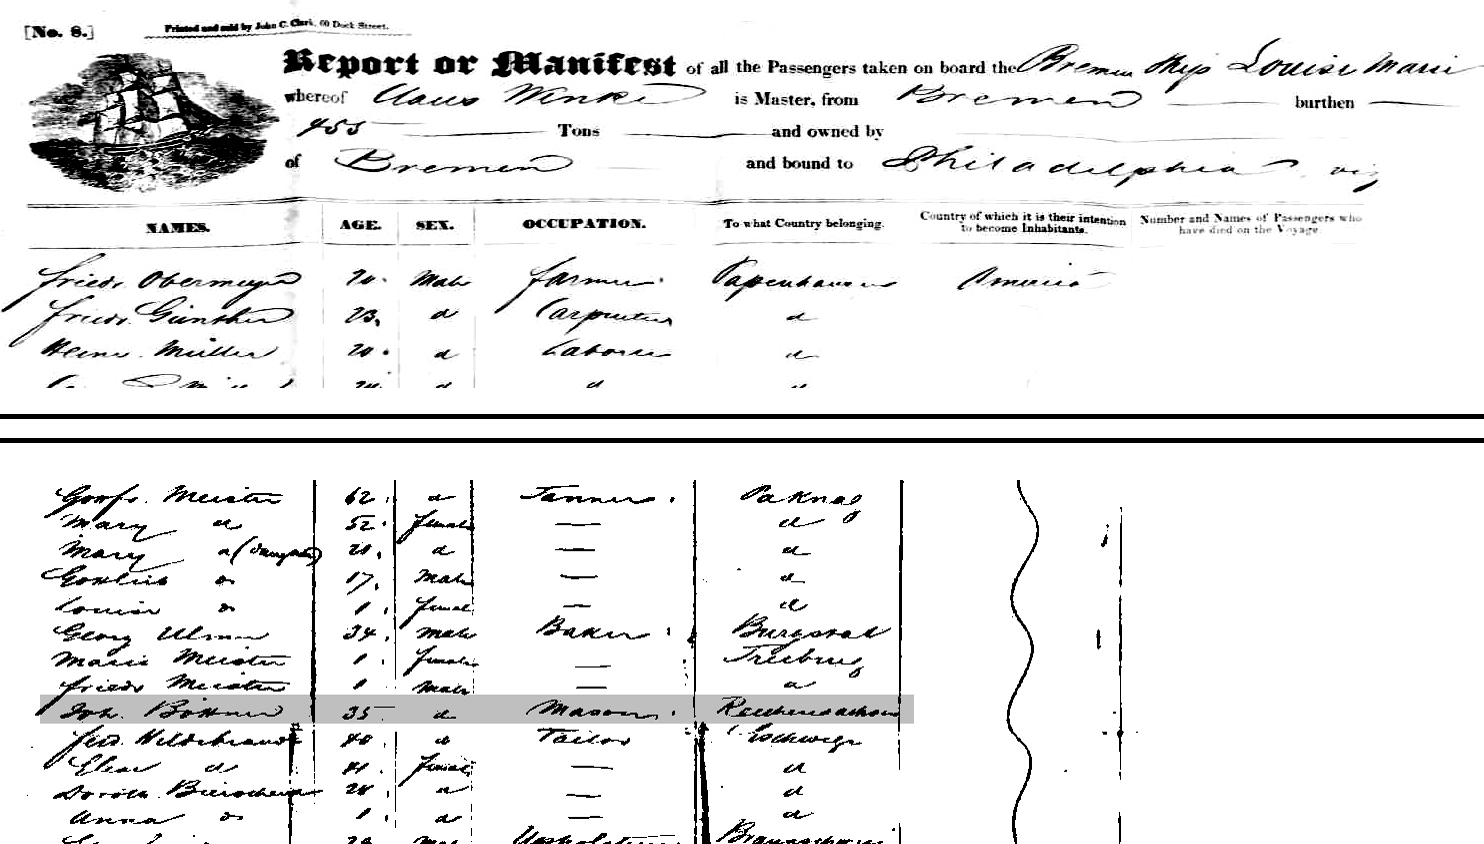 [No. 8.]
Printed and sold by John C. Clark, 60 Dock Street.
Report or Manifest of all the Passengers taken on board the Bremen Ship Louise Marie
whereof Claus Wenke is Master, from Bremen burthen
455 Tons and owned by
of Bremen and bound to Philadelphia viz
NAMES. AGE. SEX. OCCUPATION. To what Country belonging. Country of which it is their intention to become Inhabitants. Number and Names of Passengers who have died on the Voyage.
Friedr. Obermeyer 20. Male farmer Papenhausen America
Friedr. Günther 23. d Carpenter d
Heinr. Müller 20. d Laborer d
d d d
Meister 62. d Tanner. d
Mary d 52. female — d
Mary d (daughter) 20. d — d
Gottlieb do 17. Male — d
Louise do 1. female — d
Georg Ulmer 34. male Baker
Marie Meister 1. female —
Friedr Meister 1 male — d
Joh. Böttner 35 d Mason. Reichensachsen
Ferd. Hildebrandt 40. d Tailor Eschwege
Elise d 41. female — d
Doroth. 28. d — d
Anna do 1. d — d
Upholsterer Braunschweig